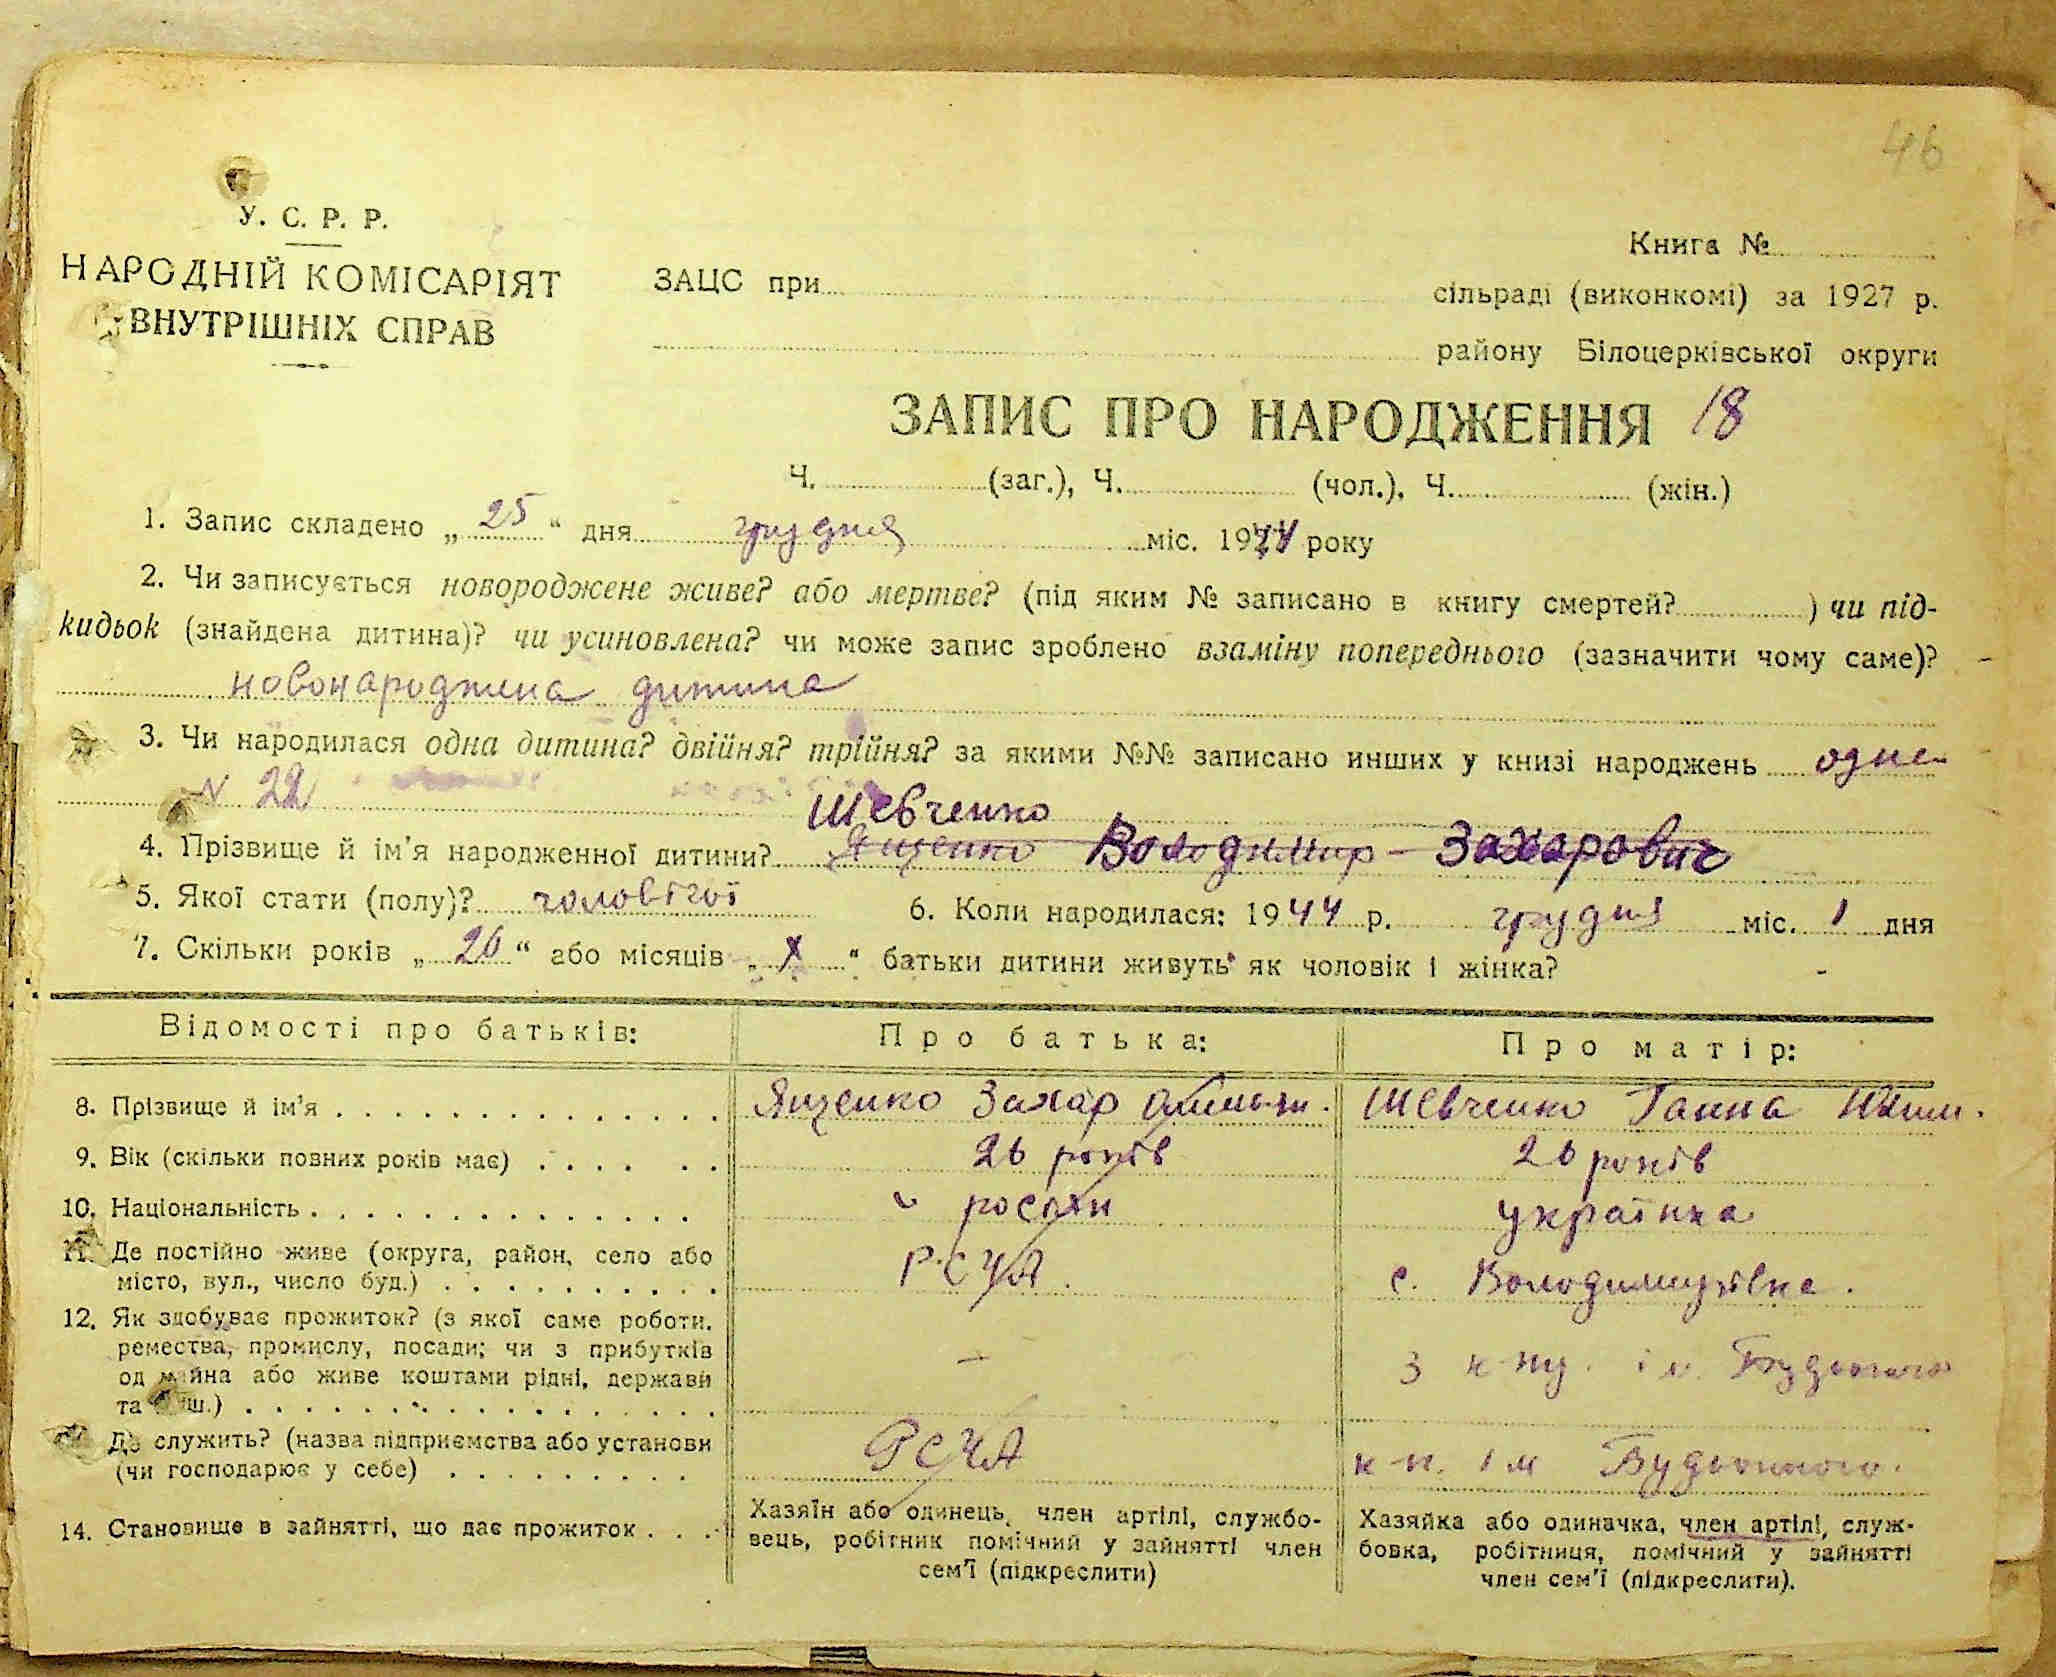 46
У. С. Р. Р.
НАРОДНІЙ КОМІСАРІЯТ
ВНУТРІШНІХ СПРАВ
Книга №
ЗАЦС при сільраді (виконкомі) за 1927 р.
району Білоцерківської округи
ЗАПИС ПРО НАРОДЖЕННЯ 18
Ч. (заг.), Ч. (чол.), Ч. (жін.)
1. Запис складено „ 25 “ дня грудня міс. 1944 року
2. Чи записується новороджене живе? або мертве? (під яким № записано в книгу смертей? ) чи під-
кидьок (знайдена дитина)? чи усиновлена? чи може запис зроблено взаміну попереднього (зазначити чому саме)?
новонароджена дитина
3. Чи народилася одна дитина? двійня? трійня? за якими №№ записано инших у книзі народжень одна
N 22
Шевченко
4. Прізвище й ім'я народженної дитини? Ященко Володимир – Захарович
5. Якої стати (полу)? чоловічої 6. Коли народилася: 1944 р. грудня міс. 1 дня
7. Скільки років „ 26 “ або місяців „ х “ батьки дитини живуть як чоловік і жінка? -
Відомості про батьків: Про батька: Про матір:
8. Прізвище й ім'я Ященко Захар Шевченко Ганна
9. Вік (скільки повних років має) 26 років 26 років
10. Національність росіян українка
11. Де постійно живе (округа, район, село або
місто, вул., число буд.) РСЧА. с. Володимирівка.
12. Як здобуває прожиток? (з якої саме роботи,
ремества, промислу, посади; чи з прибутків
од майна або живе коштами рідні, держави
та инш.) – з ім. Будьоного
Де служить? (назва підприємства або установи
(чи господарює у себе) РСЧА к-п. ім Будьоного.
14. Становище в зайнятті, що дає прожиток
Хазяїн або одинець, член артілі, службо-
вець, робітник помічний у зайнятті член
сем'ї (підкреслити)
Хазяйка або одиначка, член артілі, служ-
бовка, робітниця, помічний у зайнятті
член сем'ї (підкреслити).